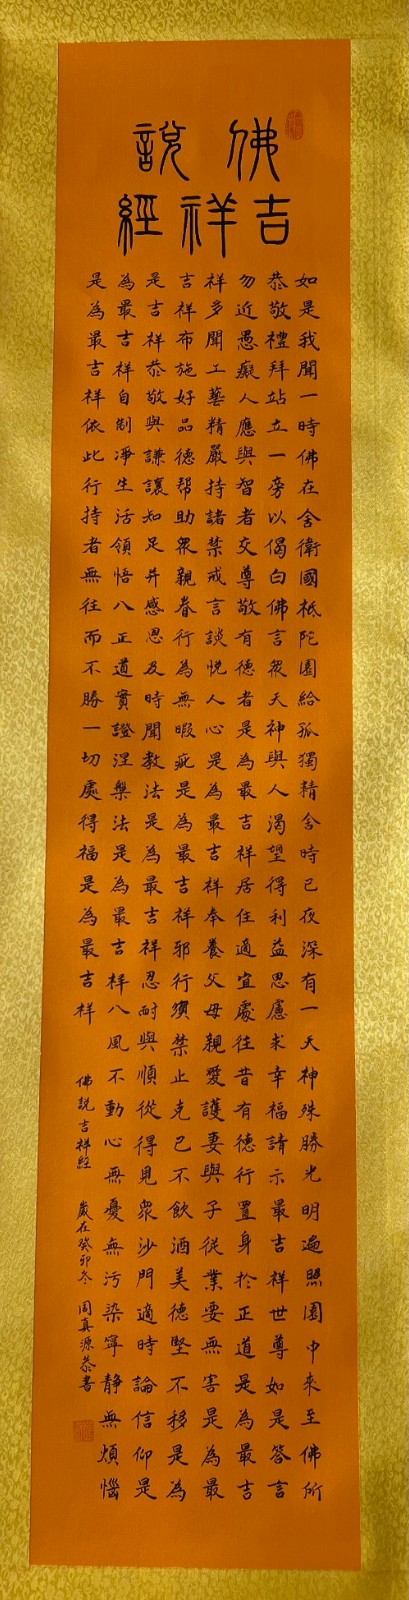 佛說
吉祥經
如是我聞一時佛在舍衛國祇陀園給孤獨精舍時已夜深有一天神殊勝光明遍照園中來至佛所
恭敬禮拜站立一旁以偈白佛言眾天神與人渴望得利益思慮求幸福請示最吉祥世尊如是答言
勿近愚癡人應與智者交尊敬有德者是為最吉祥居住適宜處往昔有德行置身於正道是為最吉
祥多聞工藝精嚴持諸禁戒言談悅人心是為最吉祥奉養父母親愛護妻與子從業要無害是為最
吉祥布施好品德帮助眾親眷行為無暇疵是為最吉祥邪行須禁止克己不飲酒美德堅不移是為
是吉祥恭敬與謙讓知足并感恩及時聞教法是為最吉祥忍耐與順從得見眾沙門適時論信仰是
為最吉祥自制淨生活領悟八正道實證涅槃法是為最吉祥八風不動心無憂無污染寧靜無煩惱
是為最吉祥依此行持者無往而不勝一切處得福是為最吉祥
佛説吉祥經 歲在癸卯冬 周真源恭書